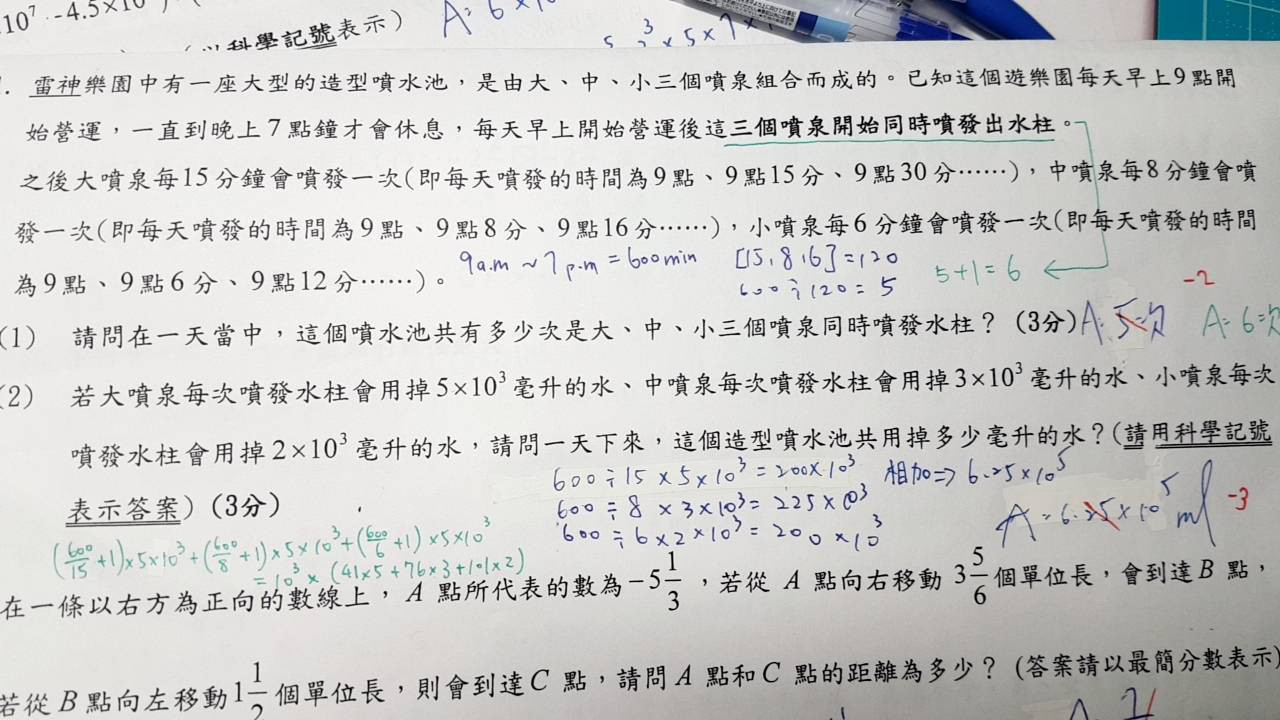 10⁷ -4.5×10
A: 6×10
科學記號表示)
5 ×5×7×
. 雷神樂園中有一座大型的造型噴水池，是由大、中、小三個噴泉組合而成的。已知這個遊樂園每天早上9點開
始營運，一直到晚上7點鐘才會休息，每天早上開始營運後這三個噴泉開始同時噴發出水柱。
之後大噴泉每15分鐘會噴發一次(即每天噴發的時間為9點、9點15分、9點30分……)，中噴泉每8分鐘會噴
發一次(即每天噴發的時間為9點、9點8分、9點16分……)，小噴泉每6分鐘會噴發一次(即每天噴發的時間
為9點、9點6分、9點12分……)。
9a.m ~ 7p.m = 600min
[15,8,6]=120
600÷120=5
5+1=6
-2
(1) 請問在一天當中，這個噴水池共有多少次是大、中、小三個噴泉同時噴發水柱？(3分)
A: 5次
A: 6次
(2) 若大噴泉每次噴發水柱會用掉5×10³毫升的水、中噴泉每次噴發水柱會用掉3×10³毫升的水、小噴泉每次
噴發水柱會用掉2×10³毫升的水，請問一天下來，這個造型噴水池共用掉多少毫升的水？(請用科學記號
表示答案)(3分)
600÷15×5×10³=200×10³
600÷8×3×10³=225×10³
600÷6×2×10³=200×10³
相加=> 6.25×10⁵
A: 6.25×10⁵ml
-3
(600/15+1)×5×10³+(600/8+1)×5×10³+(600/6+1)×5×10³
=10³×(41×5+76×3+101×2)
在一條以右方為正向的數線上，A 點所代表的數為-5 1/3，若從 A 點向右移動 3 5/6 個單位長，會到達 B 點，
若從 B 點向左移動1 1/2 個單位長，則會到達 C 點，請問 A 點和 C 點的距離為多少？(答案請以最簡分數表示)